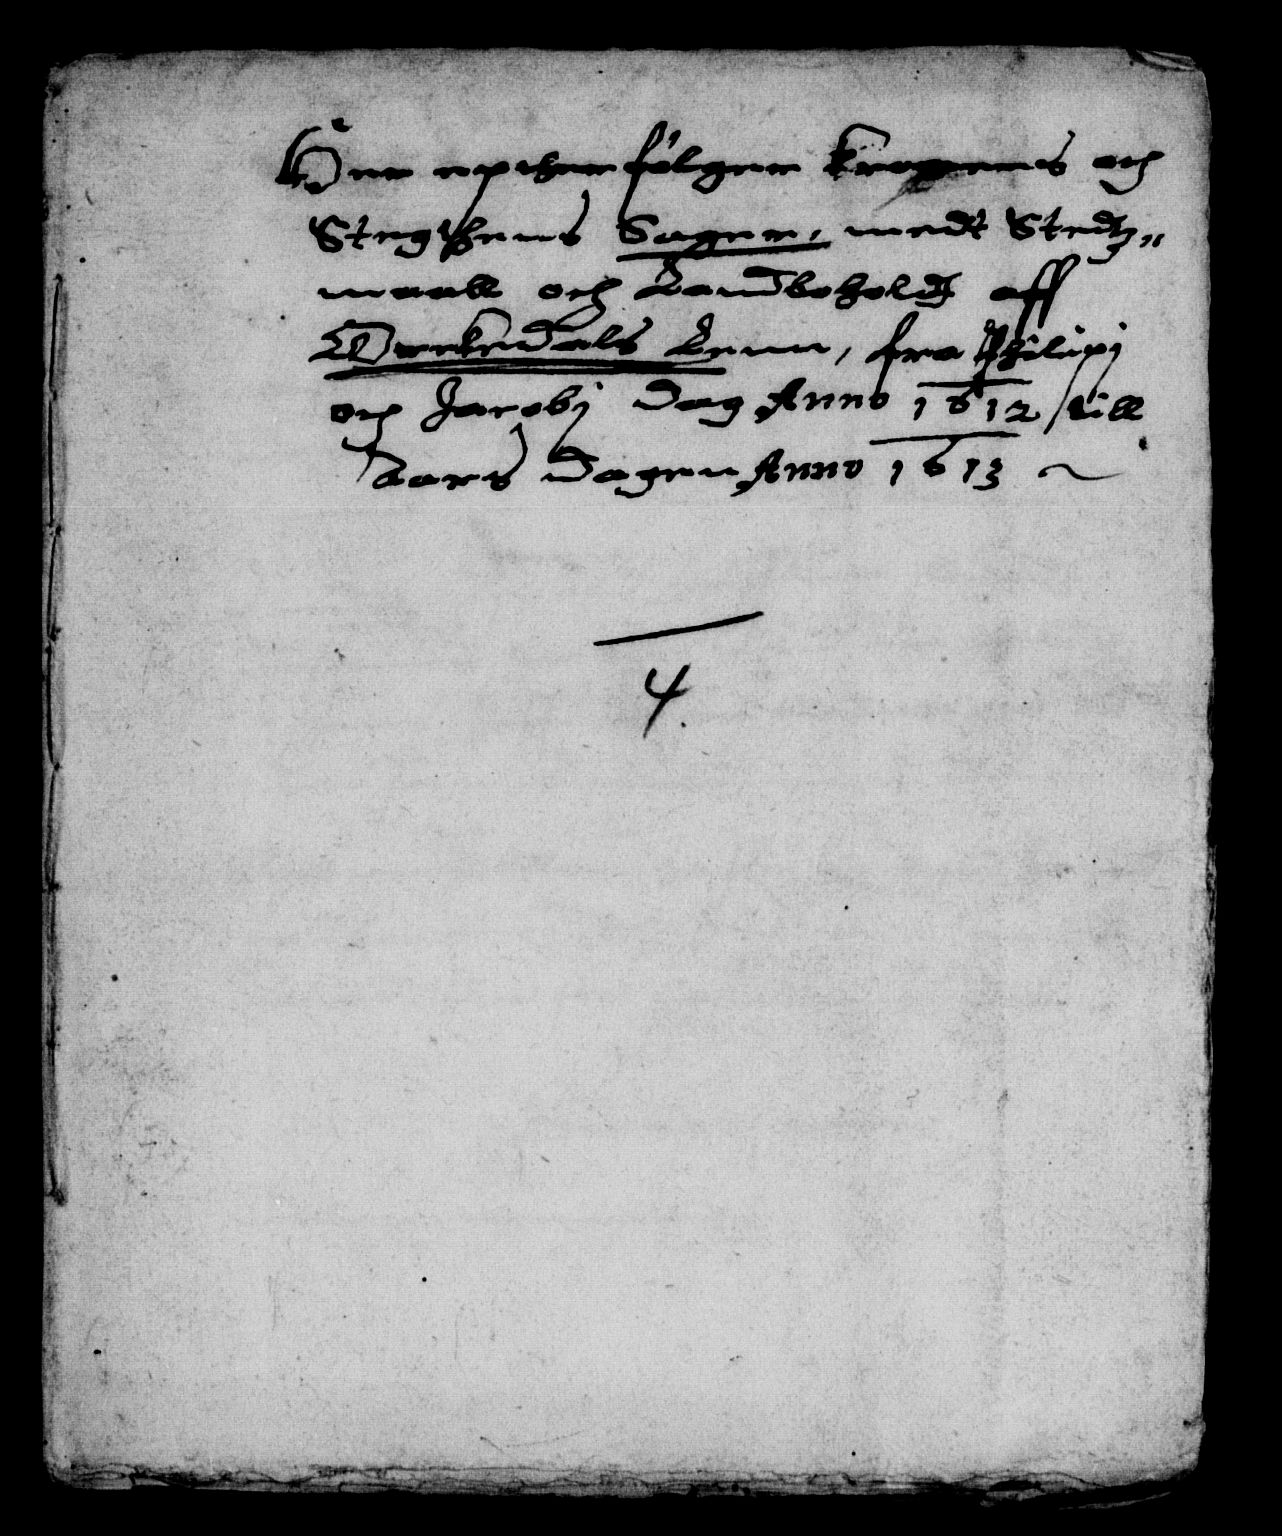 Her epther følger Kronens och
Stegthens Sager, medt Stedtz„
maall och Landboholdt aff
Orckedals Lenn, fra Philipi
och Jacobi dag Anno 1612 till
Aars dagen Anno 1613
4.